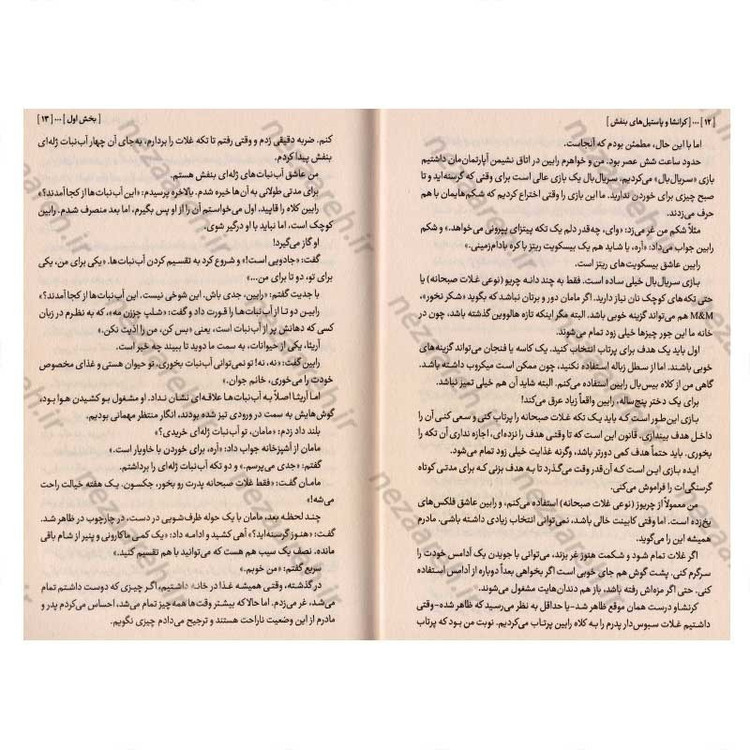 [ ۱۲ ] ... [ کرانشا و پاستیل‌های بنفش ]
اما با این حال، مطمئن بودم که آنجاست.
حدود ساعت شش عصر بود. من و خواهرم رابین در اتاق نشیمن آپارتمان‌مان داشتیم
بازی «سریال‌بال» می‌کردیم. سریال‌بال یک بازی عالی است برای وقتی که گرسنه‌اید و تا
صبح چیزی برای خوردن ندارید. ما این بازی را وقتی اختراع کردیم که شکم‌هایمان با هم
حرف می‌زدند.
مثلاً شکم من غر می‌زد: «وای، چه‌قدر دلم یک تکه پیتزای پپرونی می‌خواهد.» و شکم
رابین جواب می‌داد: «آره، یا شاید هم یک بیسکویت ریتز با کره بادام‌زمینی.»
رابین عاشق بیسکویت‌های ریتز است.
بازی سریال‌بال خیلی ساده است. فقط به چند دانه چریو (نوعی غلات صبحانه) یا
حتی تکه‌های کوچک نان نیاز دارید. اگر مامان دور و برتان نباشد که بگوید «شکر نخور»،
M&M هم می‌تواند گزینه خوبی باشد. البته مگر اینکه تازه هالووین گذشته باشد، چون در
خانه ما این جور چیزها خیلی زود تمام می‌شوند.
اول باید یک هدف برای پرتاب انتخاب کنید. یک کاسه یا فنجان می‌تواند گزینه‌های
خوبی باشند. اما از سطل زباله استفاده نکنید، چون ممکن است میکروب داشته باشد.
گاهی من از کلاه بیس‌بال رابین استفاده می‌کنم. البته شاید آن هم خیلی تمیز نباشد.
برای یک دختر پنج‌ساله، رابین واقعاً زیاد عرق می‌کند!
بازی این‌طور است که باید یک تکه غلات صبحانه را پرتاب کنی و سعی کنی آن را
داخل هدف بیندازی. قانون این است که تا وقتی هدف را نزده‌ای، اجازه نداری آن تکه را
بخوری. باید حتماً هدف کمی دورتر باشد، وگرنه غذایت خیلی زود تمام می‌شود.
ایده بازی این است که آن‌قدر وقت می‌گذرد تا به هدف بزنی که برای مدتی کوتاه
گرسنگی‌ات را فراموش می‌کنی.
من معمولاً از چریوز (نوعی غلات صبحانه) استفاده می‌کنم، و رابین عاشق فلکس‌های
یخ‌زده است. اما وقتی کابینت خالی باشد، نمی‌توانی انتخاب زیادی داشته باشی. مادرم
همیشه این را می‌گوید.
اگر غلات تمام شود و شکمت هنوز غر بزند، می‌توانی با جویدن یک آدامس خودت را
سرگرم کنی. پشت گوش هم جای خوبی است اگر بخواهی بعداً دوباره از آدامس استفاده
کنی. حتی اگر مزه‌اش رفته باشد، باز هم دندان‌هایت مشغول می‌شوند.
کرنشاو درست همان موقع ظاهر شد-یا حداقل به نظر می‌رسید که ظاهر شده-وقتی
داشتیم غلات سبوس‌دار پدرم را به کلاه رابین پرتاب می‌کردیم. نوبت من بود که پرتاب
[ بخش اول ] ... [ ۱۳ ]
کنم. ضربه دقیقی زدم و وقتی رفتم تا تکه غلات را بردارم، به‌جای آن چهار آب‌نبات ژله‌ای
بنفش پیدا کردم.
من عاشق آب‌نبات‌های ژله‌ای بنفش هستم.
برای مدتی طولانی به آن‌ها خیره شدم. بالاخره پرسیدم: «این آب‌نبات‌ها از کجا آمدند؟»
رابین کلاه را قاپید. اول می‌خواستم آن را از او پس بگیرم، اما بعد منصرف شدم. رابین
کوچک است، اما نباید با او درگیر شوی.
او گاز می‌گیرد!
گفت: «جادویی است!» و شروع کرد به تقسیم کردن آب‌نبات‌ها. «یکی برای من، یکی
برای تو، دو تا برای من...»
با جدیت گفتم: «رابین، جدی باش. این شوخی نیست. این آب‌نبات‌ها از کجا آمدند؟»
رابین دو تا از آب‌نبات‌ها را قورت داد و گفت: «شلپ چززن مه»، که به نظرم در زبان
کسی که دهانش پر از آب‌نبات است، یعنی «بس کن، من را اذیت نکن.»
آریتا، یکی از حیوانات، به سمت ما دوید تا ببیند چه خبر است.
رابین گفت: «نه، نه! تو نمی‌توانی آب‌نبات بخوری، تو حیوان هستی و غذای مخصوص
خودت را می‌خوری، خانم جوان.»
اما آریتا اصلاً به آب‌نبات‌ها علاقه‌ای نشان نداد. او مشغول بو کشیدن هوا بود،
گوش‌هایش به سمت در ورودی تیز شده بودند، انگار منتظر مهمانی بودیم.
بلند داد زدم: «مامان، تو آب‌نبات ژله‌ای خریدی؟»
مامان از آشپزخانه جواب داد: «آره، برای خوردن با خاویار است.»
گفتم: «جدی می‌پرسم.» و دو تکه آب‌نبات ژله‌ای را برداشتم.
مامان گفت: «فقط غلات صبحانه پدرت رو بخور، جکسون. یک هفته خیالت راحت
می‌شه!»
چند لحظه بعد، مامان با یک حوله ظرف‌شویی در دست، در چارچوب در ظاهر شد.
گفت: «هنوز گرسنه‌اید؟» آهی کشید و ادامه داد: «یک کمی ماکارونی و پنیر از شام باقی
مانده. نصف یک سیب هم هست که می‌توانید با هم تقسیم کنید.»
سریع گفتم: «من خوبم.»
در گذشته، وقتی همیشه غذا در خانه داشتیم، اگر چیزی که دوست داشتم تمام
می‌شد، غر می‌زدم. اما حالا که بیشتر وقت‌ها همه چیز تمام می‌شد، احساس می‌کردم پدر و
مادرم از این وضعیت ناراحت هستند و ترجیح می‌دادم چیزی نگویم.
nezaareh.ir